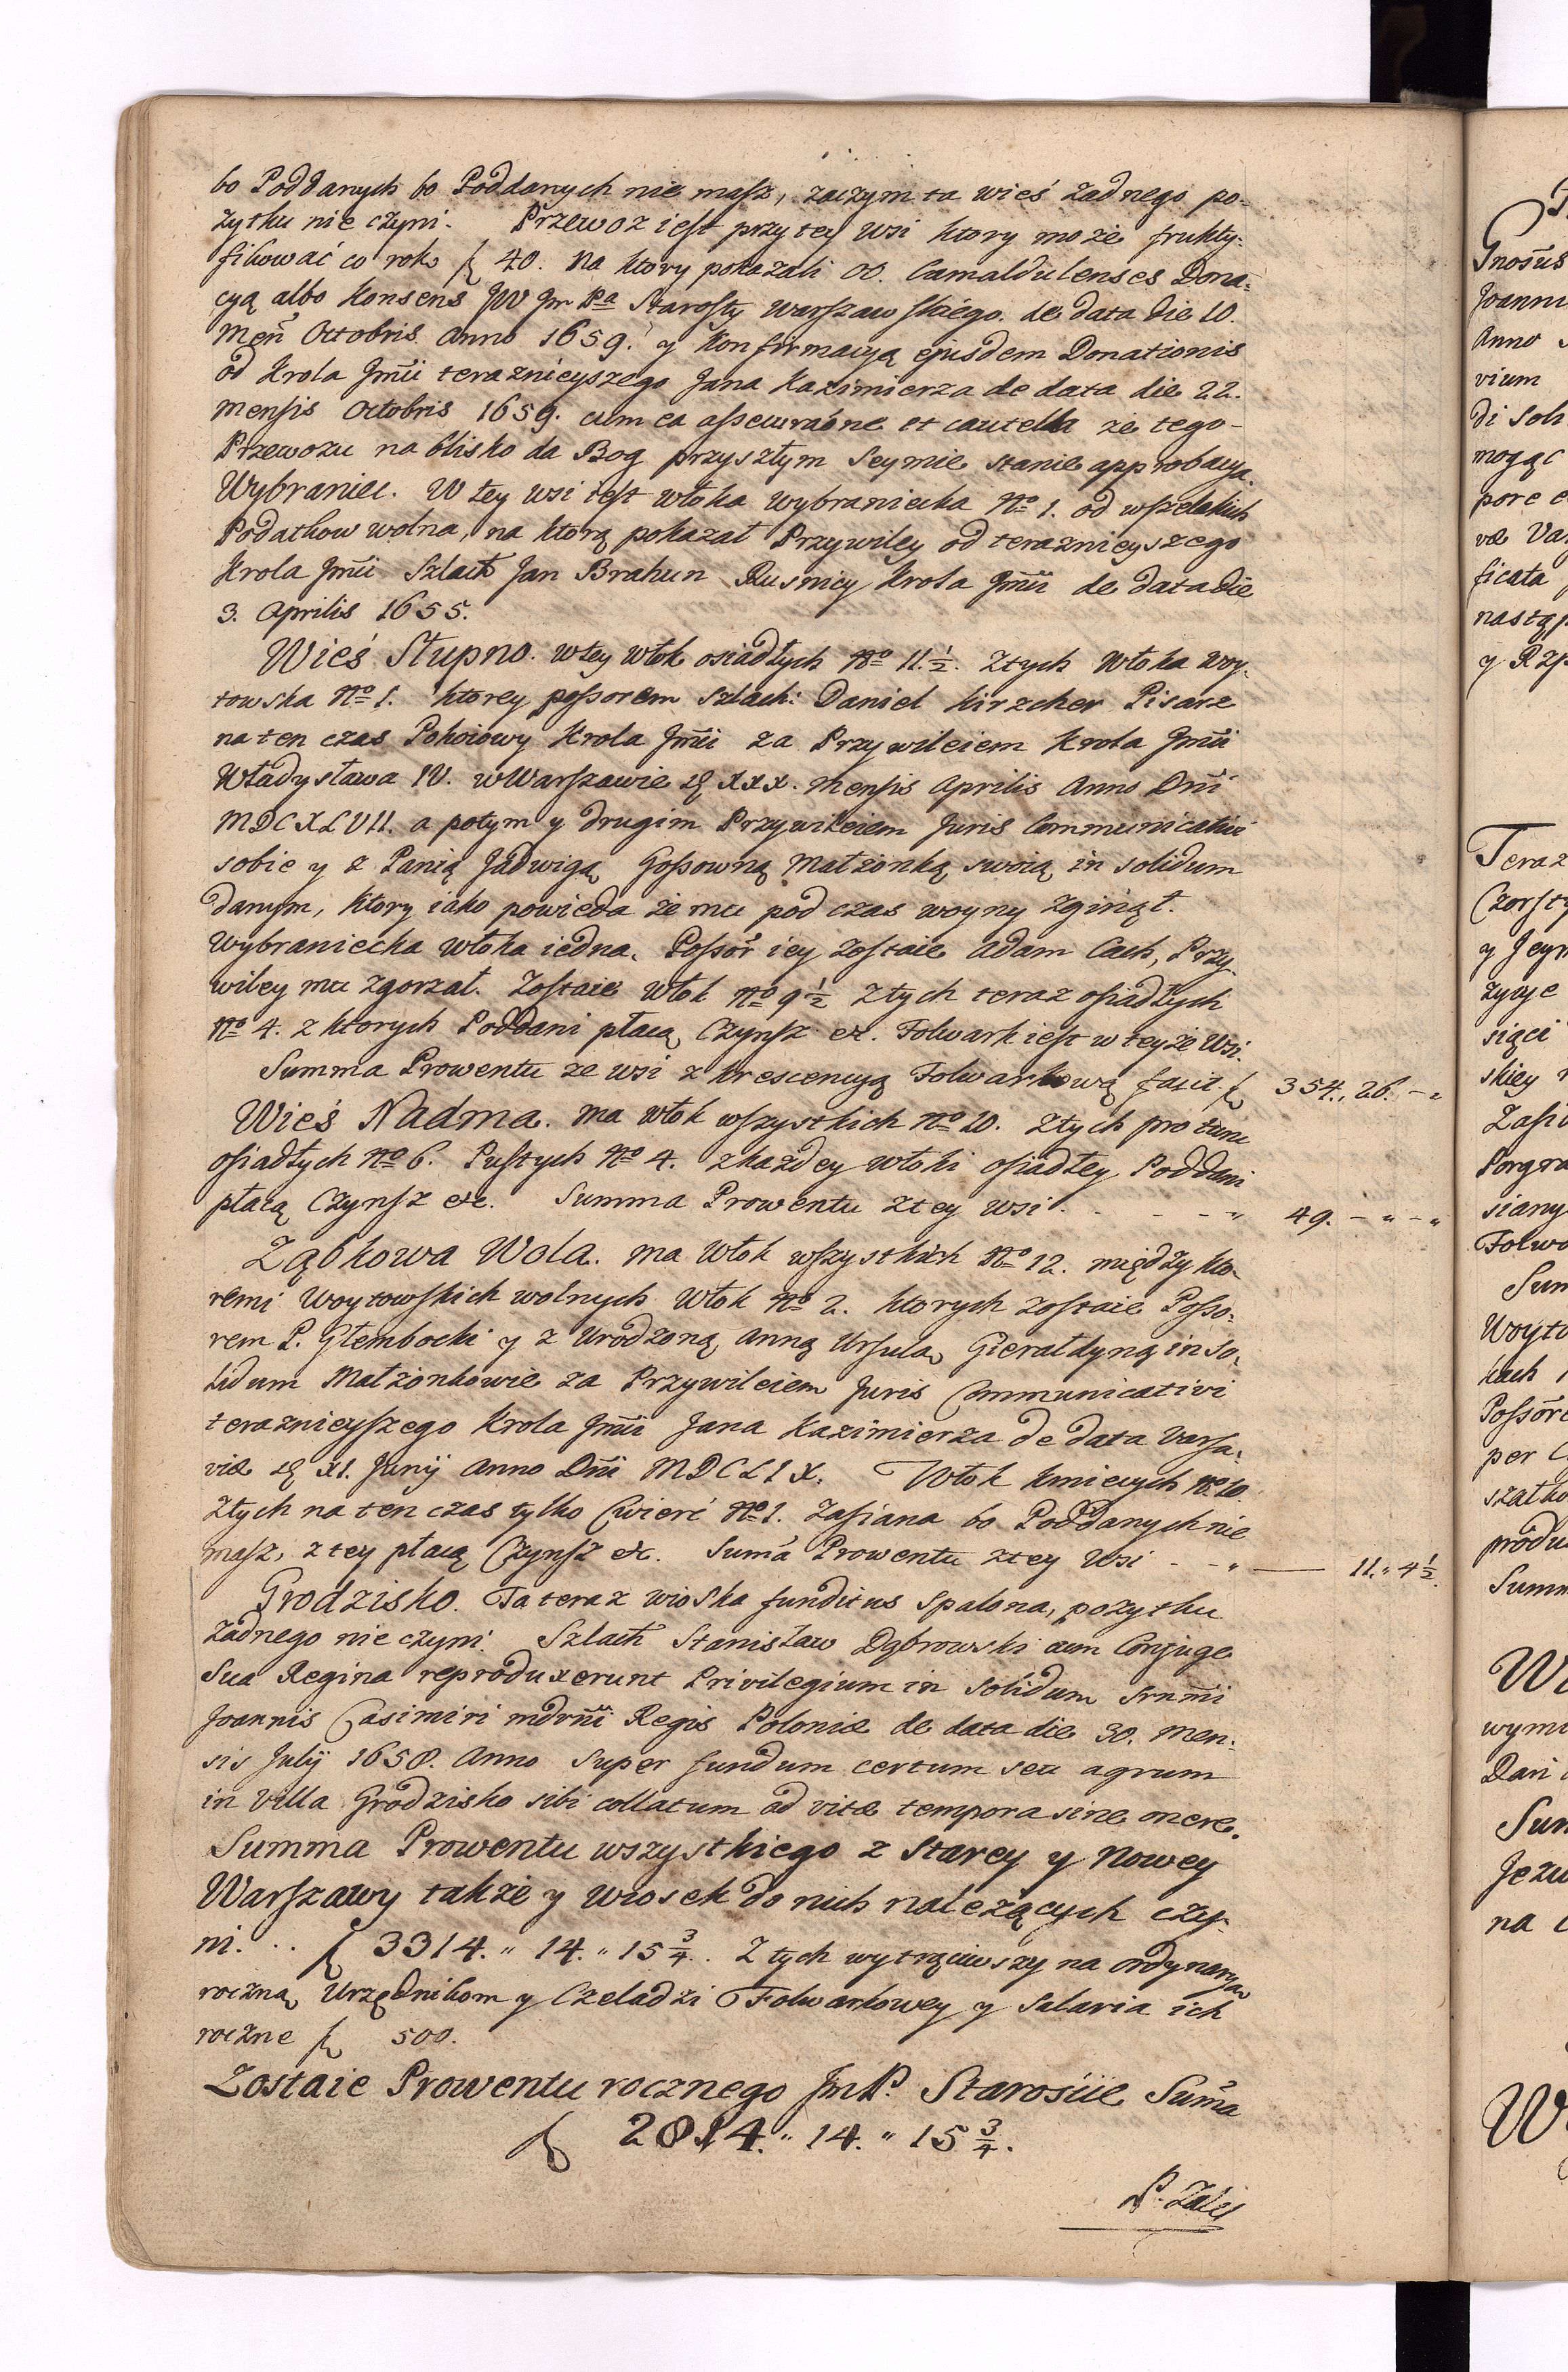 bo Poddanych bo Poddanych nie masz, zaczym ta wieś żadnego po-
żytku nie czyni. Przewoz iest przy tey wsi ktory może frukty-
fikować co rok f 40. Na ktory pokazali OO. Camaldulenses Dona-
cyą albo Konsens JW Jm Pa Starosty Warszawskiego de data die 10.
Men Octobris Anno 1659. y Konfirmacyą ejusdem Donationis
od Krola Jmci teraznieyszego Jana Kazimierza de data die 22.
Mensis Octobris 1659. cum ea assecuraōne et cautella że tego-
Przewozu na blisko da Bog przyszłym Seymie stanie approbacya.
Wybraniec. W tey wsi iest włoka wybraniecka No 1. od wszelakich
Podatkow wolna, na ktorą pokazał Przywiley od teraznieyszego
Krola Jmci Szlach Jan Brahun Rusnicy Krola Jmci de data die
3. Aprilis 1655.
Wieś Słupno. w tey włok osiadłych No 11.½. Z tych Włoka Woy-
towska No 1. ktorey possorem szlach: Daniel Kirzcher Pisarz
na ten czas Pokoiowy Krola Jmci za Przywileiem Krola Jmci
Władysława IV. w Warszawie d XXX. Mensis Aprilis Anno Dni
MDCXLVII. a potym y drugim Przywileiem Juris Communicativi
sobie y z Panią Jadwigą Gossowną Małżonką swoią in solidum
danym, ktory iako powieda że mu pod czas woyny zginął.
Wybraniecka włoka iedna. Possor iey zostaie Adam Cach, Przy-
wiley mu zgorzał. Zostaie Włok No 9½ z tych teraz osiadłych
No 4. z ktorych Poddani płacą Czynsz etc. Folwark iest w teyże Wsi.
Summa Prowentu ze wsi z krescencyą Folwarkową facit f 354.,, 26. - "
Wieś Nadma. ma włok wszystkich No 10. Z tych pro tunc
osiadłych No 6. Pustych No 4. z każdey włoki osiadłey Poddani
płacą Czynsz etc. Summa Prowentu z tey wsi - - - " 49. - " - "
Ząbkowa Wola. ma Włok wszystkich No 12. między kto-
remi Woytowskich wolnych Włok No 2. ktorych zostaie Posso-
rem P. Głembocki y z Urodzoną Anną Ursulą Gierałdyną in so-
lidum Małżonkowie za Przywileiem Juris Communicativi
teraznieyszego Krola Jmci Jana Kazimierza de data Varsa-
viæ d XI. Junij Anno Dni MDCLIX. Włok kmiecych No 10.
z tych na ten czas tylko Cwierć No 1. zasiana bo Poddanych nie
masz, z tey płacą Czynsz etc. Suma Prowentu z tey Wsi - - " — 11." 4½.
Grodzisko. Ta teraz wioska funditus spalona, pożytku
żadnego nie czyni. Szlach Stanisław Dąbrowski cum Conjuge
Sua Regina reproduxerunt Privilegium in solidum Srnmi
Joannis Casimiri mdrni Regis Poloniæ de data die 30. Men-
sis July 1658. Anno super fundum certum seu agrum
in Villa Grodzisko sibi collatum ad vitæ tempora sine onere.
Summa Prowentu wszystkiego z Starey y Nowey
Warszawy także y wiosek do nich należących czy-
ni. .. f 3314." 14." 15¾. Z tych wytrąciwszy na ordynaryą
roczną Urzędnikom y Czeladzi Folwarkowey y Salaria ich
roczne f 500.
Zostaie Prowentu rocznego Jm P. Starościie Suma
f 2814." 14." 15¾.